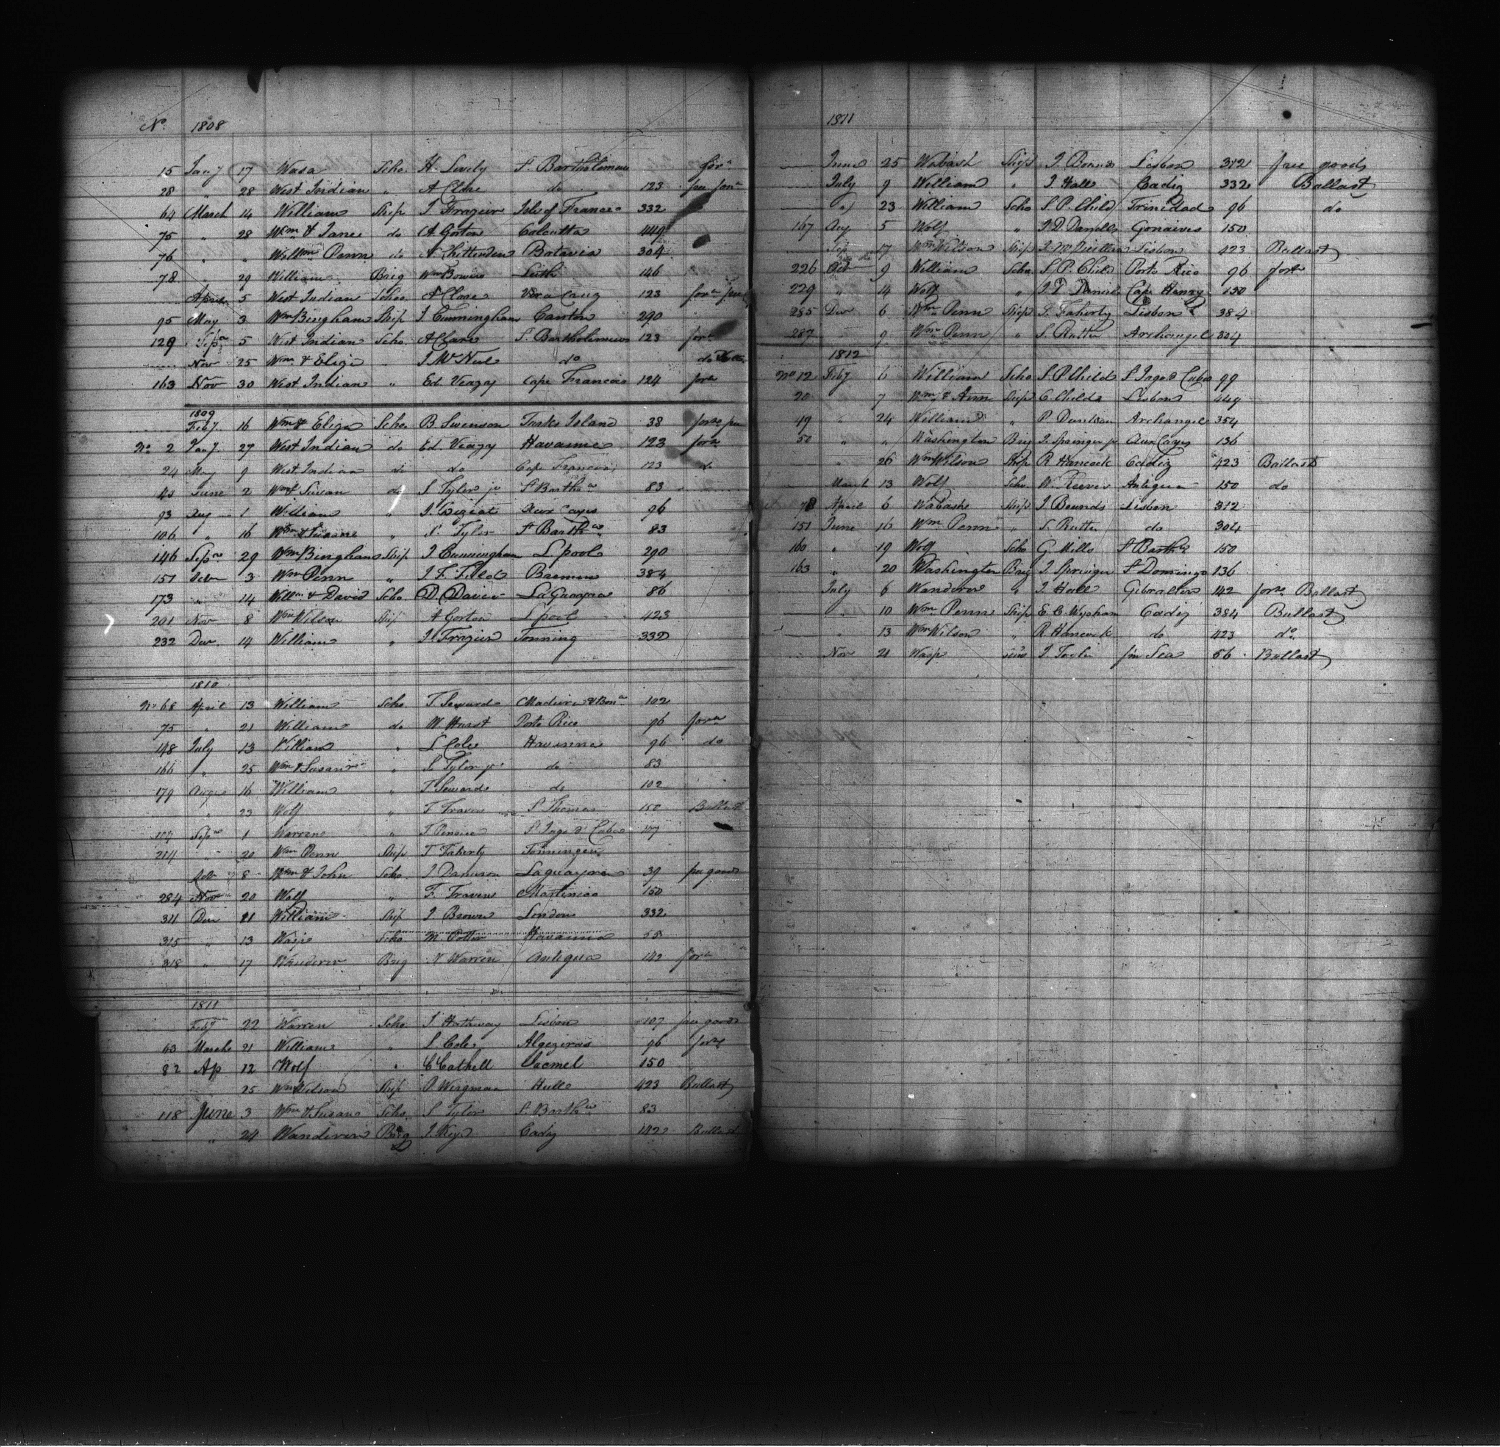 No. 1808
15 Jany 17 Wasa Scho. H. Lively St Bartholomew forn
28 " 28 West Indian " A Clore do 123 pr forn
64 March 14 William Ship J Frazier Isle of France 332
75 " 28 Wm & Jane do A Gorton Calcutta 449
76 " " Willm Penn do A Chittenden Batavia 304
78 " 29 William Brig Wm Leith 146
April 5 West Indian Scho A Clore Vera Cruz 123 forn
95 May 3 Wm Bingham Ship J Cunningham Canton 290
129 Sepr 5 West Indian Scho. A Clore St Bartholomew 123 forn
Nov 25 Wm & Eliza J McNeal do do
163 Nov 30 West Indian " Ed Veazy Cape Francois 124 forn
1809
Feby 16 Wm & Eliza Scho. B. Swenson Turks Island 38 forn
No. 2 Jany. 27 West Indian do Ed Veazy Havanna 123 forn
24 May 9 West Indian do do Cape Francois 123 do
June 2 Wm & Susan do J Tyler jr St Barths 83
93 Aug 1 William " J Aux Cayes 96
106 " 16 Wm & Susan " S Tyler St Barths 83
146 Sepr 29 Wm Bingham Ship J Cunningham Lpool 290
157 Octr 3 Wm Penn " J F Field Bremen 384
173 " 14 Willm & David Scho D Davis LaGuayra 86
201 Nov 8 Wm Wilson Ship A Gorton Lpool 423
232 Dec 14 William " J Frazier Tonning 332
1810
No 68 April 13 William Scho. T Seward Madeira 102
75 21 William do W Hurst Porto Rico 96 forn
148 July 13 William " L Cole Havanna 96 do
166 " 25 Wm & Susan " S Tyler jr do 83
179 Augt 16 William " T Seward do 102
" 23 Wolf " F Travers St Thomas 150 Ballast
Sepr 1 Warren " T St Iago d Cuba 107
214 20 Wm Penn Ship T Faherty Tonningen
Octr 8 Wm & John Scho. J Laguayra 39 pr goods
284 Nov 20 Wolf " F. Travers Martinico 150
311 Dec 11 William Ship J Brown London 332
315 " 13 Wasp Scho M Cotter Havanna
318 " 17 Wanderer Brig N Warren Antigua 142 forn
1811
Feby 22 Warren Scho. J Hathway Lisbon 107 pr goods
63 March 21 William " S Cole Algeziras 96 forn
82 Ap 12 Wolf " C Cathell Jacmel 150
25 Wm Wilson Ship P Wirgman Hull 423 Ballast
118 June 3 Wm & Susan Scho. S Tyler St Barths 83
" 24 Wanderer Brig J Keys Cadiz 142 Ballast
1811
June 25 Wabash Ship J Bounds Lisbon 312 free goods
July 9 William " J Hall Cadiz 332 Ballast
23 William Scho S P Child Trinidad 96 do
167 Aug 5 Wolf " J D Daniels Gonaives 150
17 Wm Wilson Ship Lisbon 423 Ballast
226 Oct 9 William Scho S. P. Child Porto Rico 96 forn
229 " 14 Wolf " J D Daniels Cape Henry 150
285 Dec 6 Wm Penn Ship T. Faherty Lisbon 384
287 9 Wm Penn " S. Rutter Archangel 304
1812
No 12 Feby 6 William Scho S P Child St Iago d Cuba 99
20 7 Wm & Ann Ship C Childs Lisbon 449
49 " 24 William " P Dunkan Archangel 354
50 " " Washington Brig J Springer jr Aux Cayes 136
" 26 Wm Wilson Ship R Hancock Cadiz 423 Ballast
March 13 Wolf Scho W Reeves Antigua 150 do
78 April 6 Wabash Ship J Bounds Lisbon 312
151 June 16 Wm Penn " S. Rutter do 304
160 " 19 Wolf Scho G Mills St Barths 150
163 " 20 Washington Brig J Springer St Domingo 136
July 6 Wanderer " J Hall Gibralter 142 forn Ballast
" 10 Wm Penn Ship E C Wyeham Cadiz 384 Ballast
" 13 Wm Wilson " R Hancock do 423 do
Nov 21 Wasp J Taylor for Sea 56 Ballast